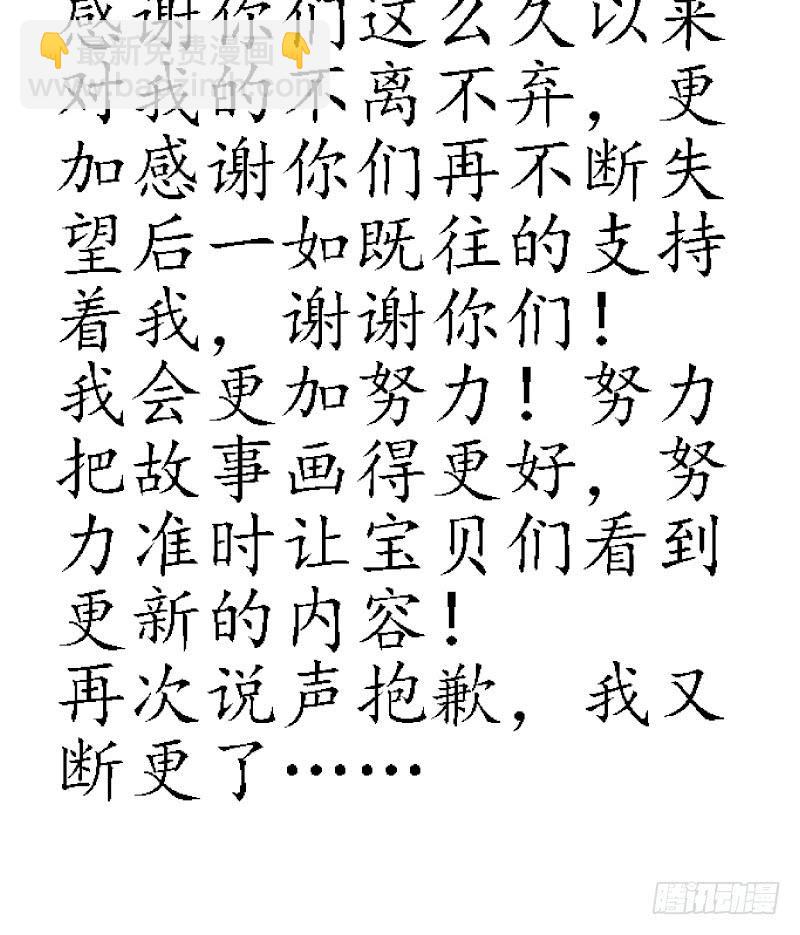 感谢你们这么久以来
👇最新免费漫画👇
对我的不离不弃，更
加感谢你们再不断失
望后一如既往的支持
着我，谢谢你们！
我会更加努力！努力
把故事画得更好，努
力准时让宝贝们看到
更新的内容！
再次说声抱歉，我又
断更了……
腾讯动漫